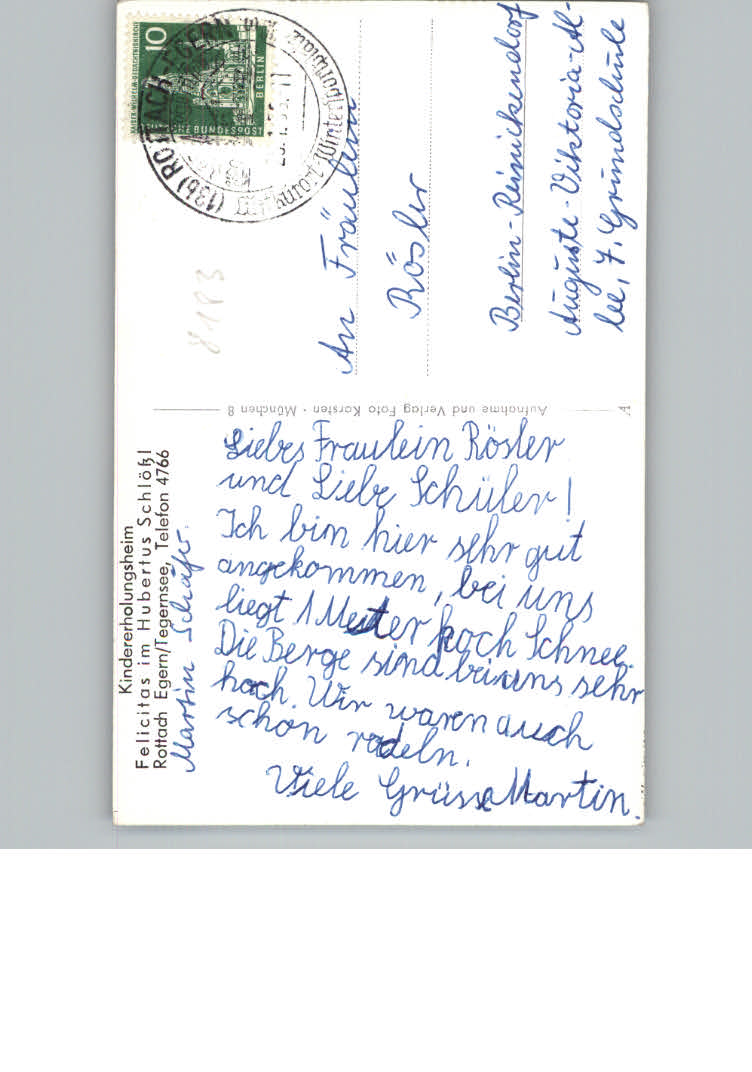 Kindererholungsheim
Felicitas im Hubertus Schlößl
Rottach Egern/Tegernsee, Telefon 4766
Martin Schäfer.
Liebes Fraulein Rösler
und Liebe Schüler!
Ich bin hier sehr gut
angekommen, bei uns
liegt 1 Meter hoch Schnee.
Die Berge sind bei uns sehr
hoch. Wir waren auch
schon rodeln.
Viele Grüsse Martin.
Aufnahme und Verlag Foto Karsten · München 8
An Fräulein
Rösler
Berlin-Reinickendorf
Auguste-Viktoria-Al-
lee, 7. Grundschule
8183
10
KAISER-WILHELM-GEDÄCHTNISKIRCHE
DEUTSCHE BUNDESPOST
BERLIN
(13b) ROTTACH-EGERN